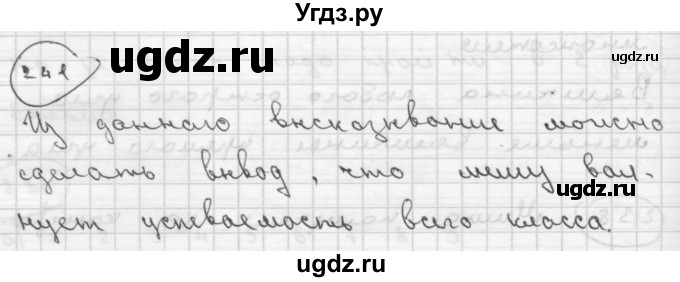 Угдз.ру
241
ugdz.ru ugdz.ru
Из данного высказывание можно
ugdz.ru
сделать вывод, что мишу вол-
нует успеваемость всего класса.
ugdz.ru
ugdz.ru